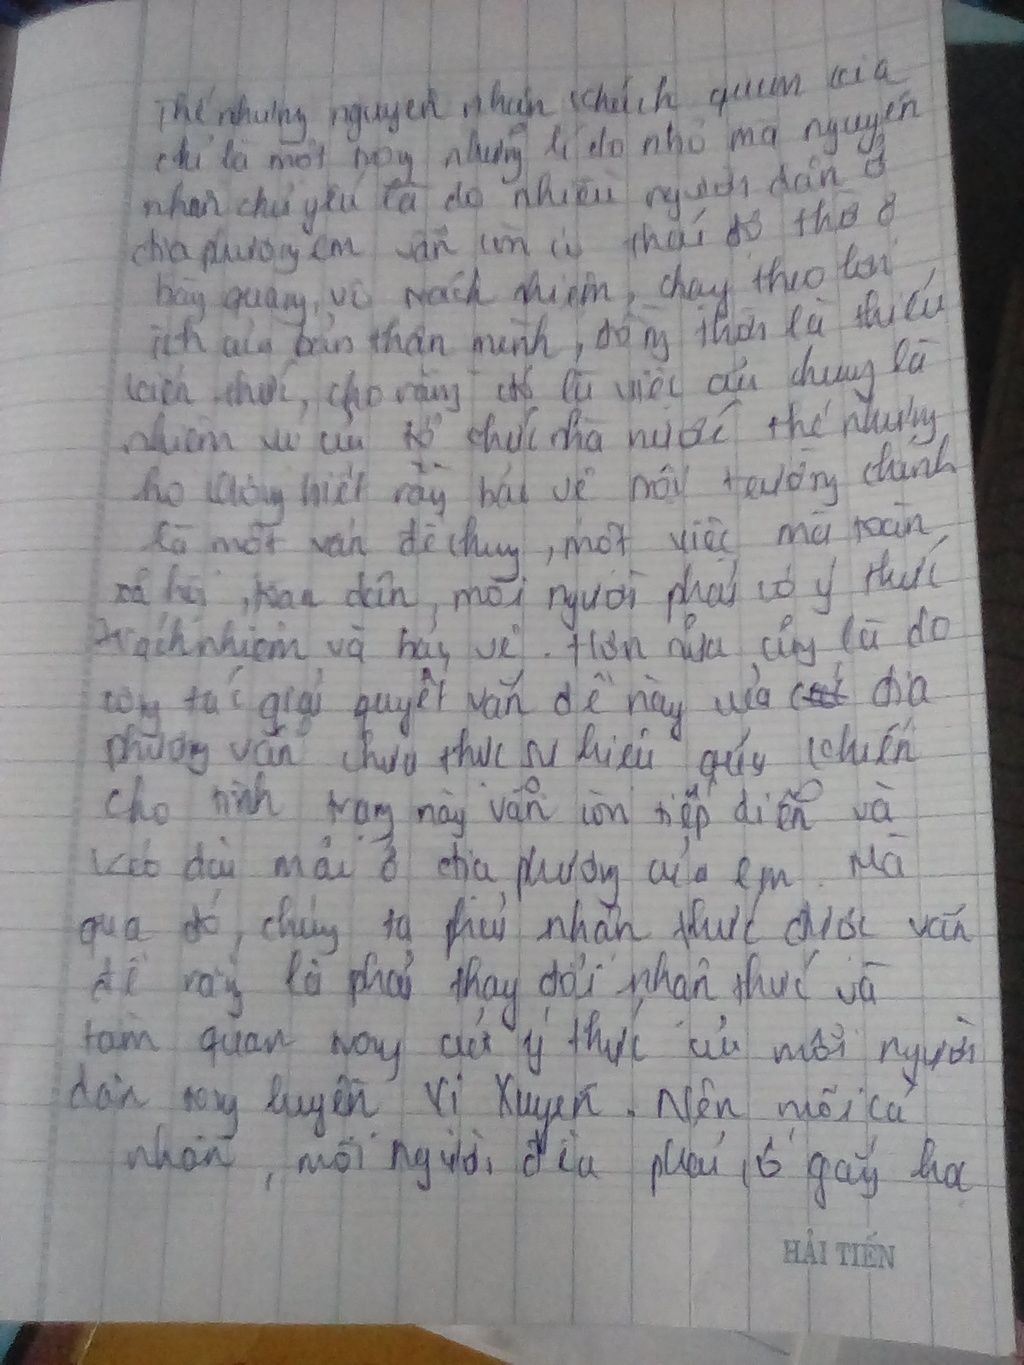 Thế nhưng nguyên nhân khách quan kia
chỉ là một trong những lí do nhỏ mà nguyên
nhân chủ yếu là do nhiều người dân ở
địa phương em vẫn còn có thái độ thờ ơ
bàng quang, vô trách nhiệm, chạy theo lợi
ích của bản thân mình, đồng thời là thiếu
kiến thức, cho rằng đó là việc của chung là
nhiệm vụ của tổ chức nhà nước thế nhưng
họ không biết rằng bảo vệ môi trường chính
là một vấn đề chung, một việc mà toàn
xã hội, toàn dân, mỗi người phải có ý thức
trách nhiệm và bảo vệ. Hơn nữa, cũng là do
công tác giải quyết vấn đề này của địa
phương vẫn chưa thực sự hiệu quả khiến
cho tình trạng này vẫn còn tiếp diễn và
kéo dài mãi ở địa phương của em. Mà
qua đó, chúng ta phải nhận thức được vấn
đề này là phải thay đổi nhận thức và
tầm quan trọng của ý thức của mỗi người
dân trong huyện Vị Xuyên. Nên mỗi cá
nhân, mỗi người đều phải cố gắng
HẢI TIẾN